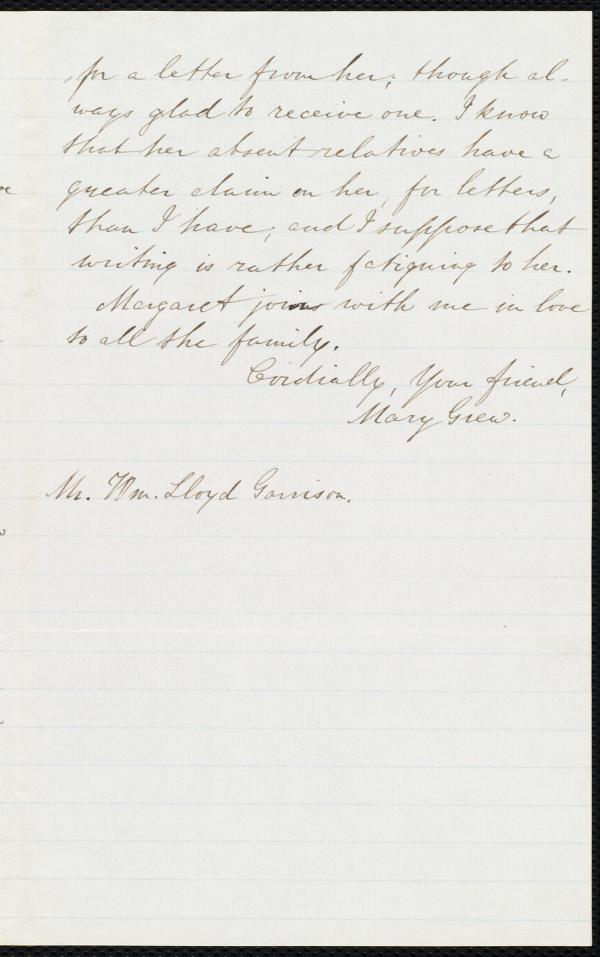 for a letter from her; though al-
ways glad to receive one. I know
that her absent relatives have a
greater claim on her, for letters,
than I have; and I suppose that
writing is rather fatiguing to her.
Margaret joins with me in love
to all the family.
Cordially, Your friend,
Mary Grew.
Mr. Wm. Lloyd Garrison.